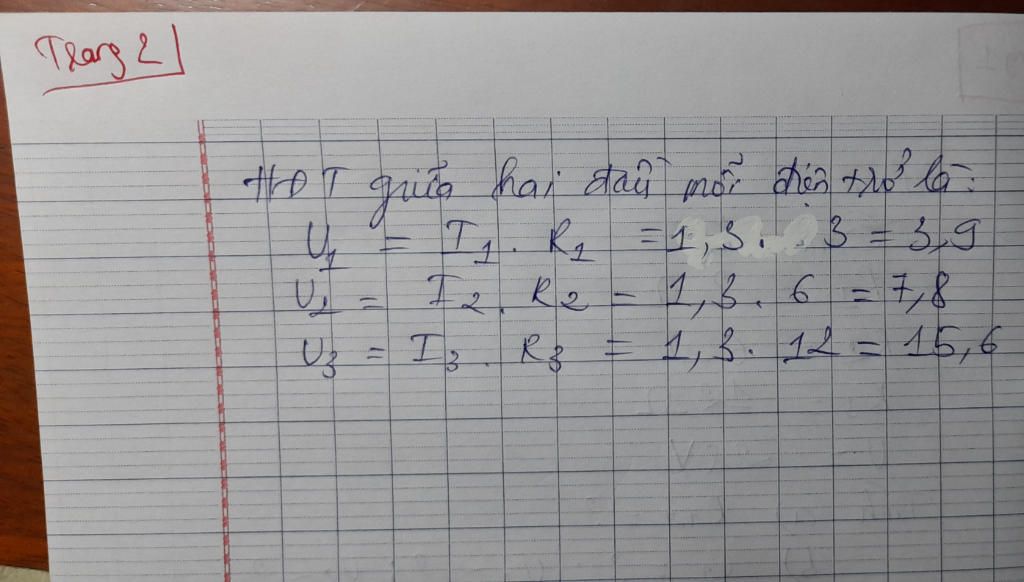 Trang 2
HĐT giữa hai đầu mỗi điện trở là:
U1 = I1 . R1 = 1,3 . 3 = 3,9
U2 = I2 . R2 = 1,3 . 6 = 7,8
U3 = I3 . R3 = 1,3 . 12 = 15,6